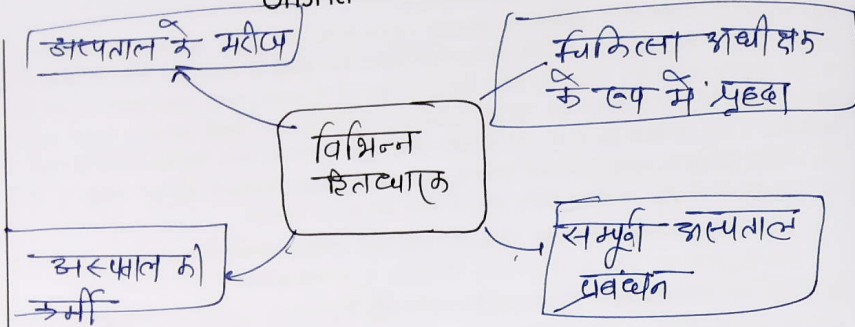 अस्पताल के मरीज
चिकित्सा अधीक्षक
के रूप में प्रहदा
विभिन्न
हितधारक
सम्पूर्ण अस्पताल
प्रबंधन
अस्पताल को
कर्मी